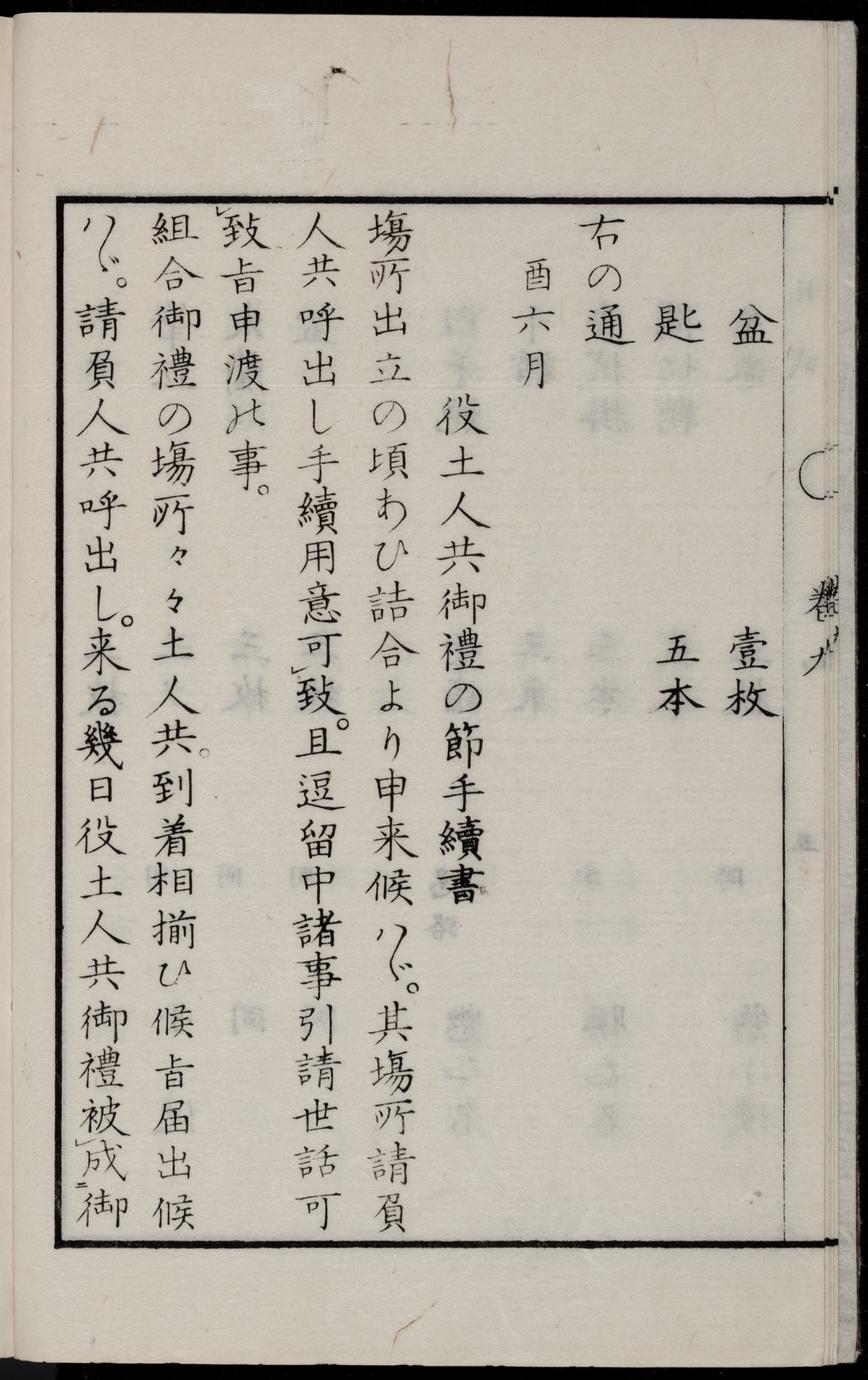 盆　壹枚
匙　五本
右の通
酉六月
役土人共御禮の節手續書
塲所出立の頃あひ詰合より申来候ハゞ。其塲所請負
人共呼出し手續用意可致。且逗留中諸事引請世話可
致旨申渡候事。
組合御禮の塲所々々土人共。到着相揃ひ候旨届出候
ハゞ。請負人共呼出し。来る幾日役土人共御禮被成御
巻九